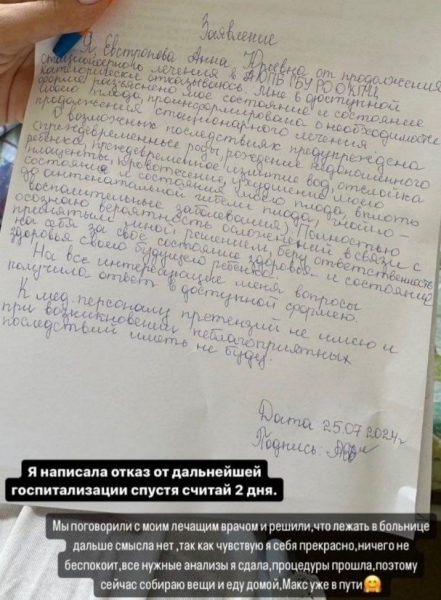 Заявление
Я, Евстропова Анна Юрьевна от продолжения
стационарного лечения в АОПБ ГБУ РО ОКПЦ
категорически отказываюсь. Мне в доступной
форме разъяснено мое состояние и состояние
моего плода, проинформирована о необходимости
продолжения стационарного лечения
О возможных последствиях предупреждена
(преждевременные роды, рождение недоношенного
ребенка, преждевременное излитие вод, отслойка
плаценты, кровотечение, ухудшение моего
состояния и состояния моего плода, вплоть
до антенатальной гибели плода, гнойно-
воспалительные заболевания) Полностью
осознаю вероятность осложнений в связи с
принятым мной решением, беру ответственность
на себя за свое состояние здоровья и состояние
здоровья своего будущего ребенка.
На все интересующие меня вопросы
получила ответ в доступной форме.
К мед. персоналу претензий не имею и
при возникновении неблагоприятных
последствий иметь не буду.
Дата 25.07.2024г
Подпись
Я написала отказ от дальнейшей
госпитализации спустя считай 2 дня.
Мы поговорили с моим лечащим врачом и решили,что лежать в больнице
дальше смысла нет ,так как чувствую я себя прекрасно,ничего не
беспокоит,все нужные анализы я сдала,процедуры прошла,поэтому
сейчас собираю вещи и еду домой,Макс уже в пути🤗